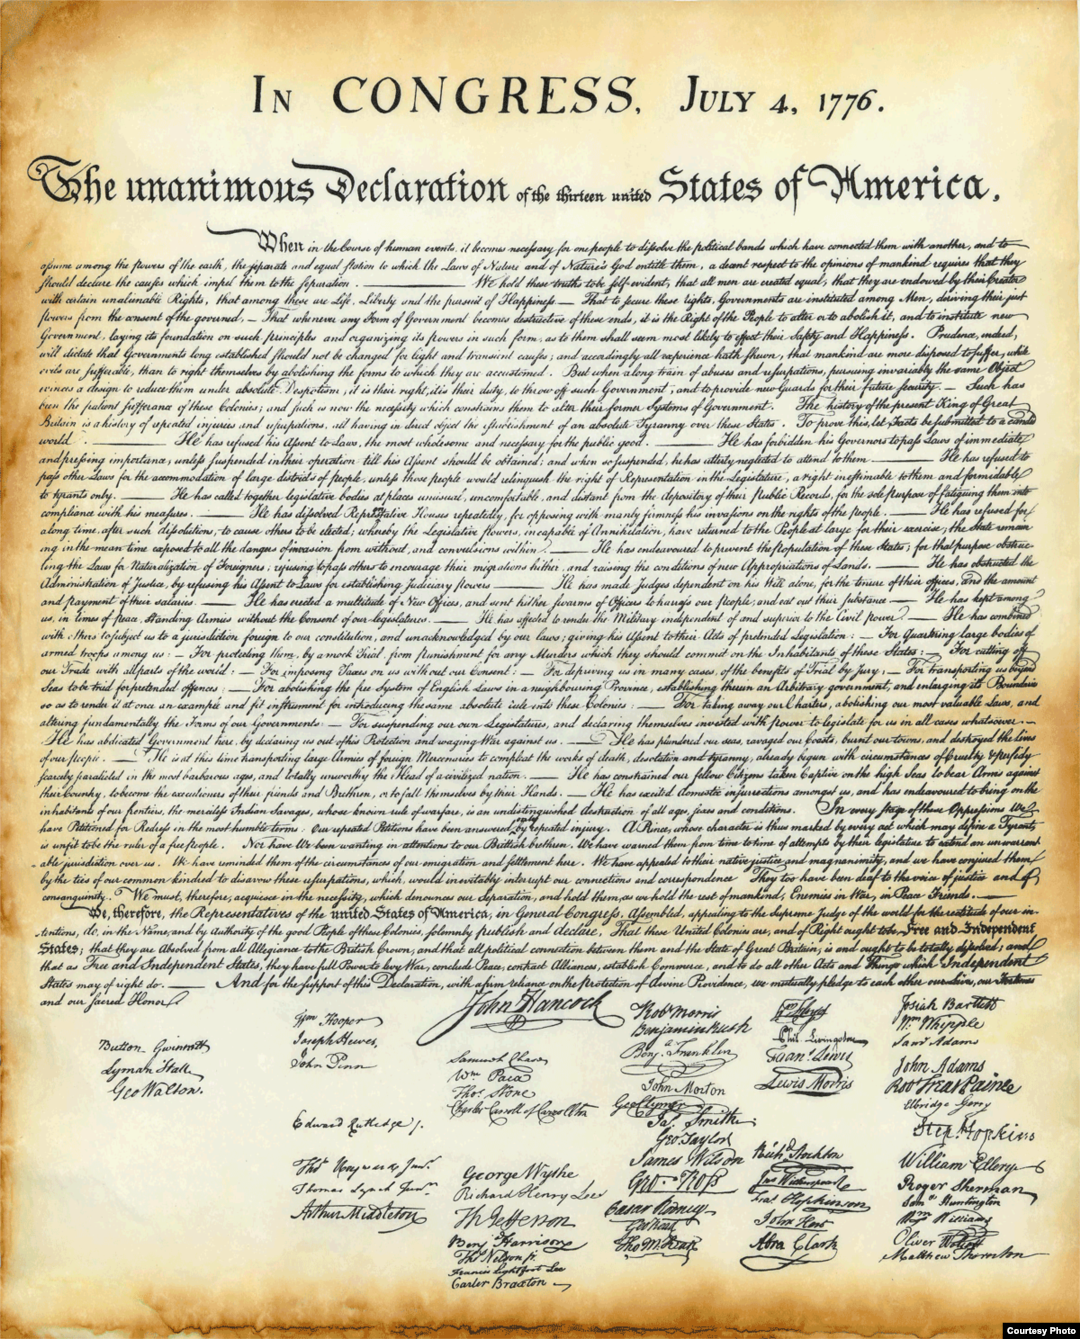 IN CONGRESS, JULY 4, 1776.
The unanimous Declaration of the thirteen united States of America,
When in the Course of human events, it becomes necessary for one people to dissolve the political bands which have connected them with another, and to
assume among the powers of the earth, the separate and equal station to which the Laws of Nature and of Nature's God entitle them, a decent respect to the opinions of mankind requires that they
should declare the causes which impel them to the separation. — We hold these truths to be self-evident, that all men are created equal, that they are endowed by their Creator
with certain unalienable Rights, that among these are Life, Liberty and the pursuit of Happiness — That to secure these rights, Governments are instituted among Men, deriving their just
powers from the consent of the governed, — That whenever any Form of Government becomes destructive of these ends, it is the Right of the People to alter or to abolish it, and to institute new
Government, laying its foundation on such principles and organizing its powers in such form, as to them shall seem most likely to effect their Safety and Happiness. Prudence, indeed,
will dictate that Governments long established should not be changed for light and transient causes; and accordingly all experience hath shewn, that mankind are more disposed to suffer, while
evils are sufferable, than to right themselves by abolishing the forms to which they are accustomed. But when a long train of abuses and usurpations, pursuing invariably the same Object
evinces a design to reduce them under absolute Despotism, it is their right, it is their duty, to throw off such Government, and to provide new Guards for their future security. — Such has
been the patient sufferance of these Colonies; and such is now the necessity which constrains them to alter their former Systems of Government. The history of the present King of Great
Britain is a history of repeated injuries and usurpations, all having in direct object the establishment of an absolute Tyranny over these States. To prove this, let Facts be submitted to a candid
world. — He has refused his Assent to Laws, the most wholesome and necessary for the public good. — He has forbidden his Governors to pass Laws of immediate
and pressing importance, unless suspended in their operation till his Assent should be obtained; and when so suspended, he has utterly neglected to attend to them. — He has refused to
pass other Laws for the accommodation of large districts of people, unless those people would relinquish the right of Representation in the Legislature, a right inestimable to them and formidable
to tyrants only. — He has called together legislative bodies at places unusual, uncomfortable, and distant from the depository of their Public Records, for the sole purpose of fatiguing them into
compliance with his measures. — He has dissolved Representative Houses repeatedly, for opposing with manly firmness his invasions on the rights of the people. — He has refused for
a long time, after such dissolutions, to cause others to be elected; whereby the Legislative powers, incapable of Annihilation, have returned to the People at large for their exercise; the State remain
ing in the mean time exposed to all the dangers of invasion from without, and convulsions within. — He has endeavoured to prevent the population of these States; for that purpose obstruc-
ting the Laws for Naturalization of Foreigners; refusing to pass others to encourage their migrations hither, and raising the conditions of new Appropriations of Lands. — He has obstructed the
Administration of Justice, by refusing his Assent to Laws for establishing Judiciary powers — He has made Judges dependent on his Will alone, for the tenure of their offices, and the amount
and payment of their salaries. — He has erected a multitude of New Offices, and sent hither swarms of Officers to harass our People, and eat out their substance — He has kept among
us, in times of peace, Standing Armies without the Consent of our legislatures. — He has affected to render the Military independent of and superior to the Civil power. — He has combined
with others to subject us to a jurisdiction foreign to our constitution, and unacknowledged by our laws; giving his Assent to their Acts of pretended Legislation: — For Quartering large bodies of
armed troops among us: — For protecting them, by a mock Trial, from punishment for any Murders which they should commit on the Inhabitants of these States: — For cutting off
our Trade with all parts of the world: — For imposing Taxes on us without our Consent: — For depriving us in many cases, of the benefits of Trial by Jury: — For transporting us beyond
Seas to be tried for pretended offences: — For abolishing the free System of English Laws in a neighbouring Province, establishing therein an Arbitrary government, and enlarging its Boundaries
so as to render it at once an example and fit instrument for introducing the same absolute rule into these Colonies: — For taking away our Charters, abolishing our most valuable Laws, and
altering fundamentally the Forms of our Governments: — For suspending our own Legislatures, and declaring themselves invested with power to legislate for us in all cases whatsoever. —
He has abdicated Government here, by declaring us out of his Protection and waging War against us. — He has plundered our seas, ravaged our Coasts, burnt our towns, and destroyed the lives
of our people. — He is at this time transporting large Armies of foreign Mercenaries to compleat the works of death, desolation and tyranny, already begun with circumstances of Cruelty & perfidy
scarcely paralleled in the most barbarous ages, and totally unworthy the Head of a civilized nation. — He has constrained our fellow Citizens taken Captive on the high Seas to bear Arms against
their Country, to become the executioners of their friends and Brethren, or to fall themselves by their Hands. — He has excited domestic insurrections amongst us, and has endeavoured to bring on the
inhabitants of our frontiers, the merciless Indian Savages, whose known rule of warfare, is an undistinguished destruction of all ages, sexes and conditions. In every stage of these Oppressions We
have Petitioned for Redress in the most humble terms: Our repeated Petitions have been answered only by repeated injury. A Prince, whose character is thus marked by every act which may define a Tyrant,
is unfit to be the ruler of a free people. Nor have We been wanting in attentions to our Brittish brethren. We have warned them from time to time of attempts by their legislature to extend an unwarrant
able jurisdiction over us. We have reminded them of the circumstances of our emigration and settlement here. We have appealed to their native justice and magnanimity, and we have conjured them
by the ties of our common kindred to disavow these usurpations, which, would inevitably interrupt our connections and correspondence They too have been deaf to the voice of justice and of
consanguinity. We must, therefore, acquiesce in the necessity, which denounces our Separation, and hold them, as we hold the rest of mankind, Enemies in War, in Peace Friends. —
We, therefore, the Representatives of the united States of America, in General Congress, Assembled, appealing to the Supreme Judge of the world for the rectitude of our in-
tentions, do, in the Name, and by Authority of the good People of these Colonies, solemnly publish and declare, That these United Colonies are, and of Right ought to be Free and Independent
States; that they are Absolved from all Allegiance to the British Crown, and that all political connection between them and the State of Great Britain, is and ought to be totally dissolved; and
that as Free and Independent States, they have full Power to levy War, conclude Peace, contract Alliances, establish Commerce, and to do all other Acts and Things which Independent
States may of right do. — And for the support of this Declaration, with a firm reliance on the Protection of divine Providence, we mutually pledge to each other our Lives, our Fortunes
and our Sacred Honor
Button Gwinnett
Lyman Hall
Geo Walton.
Wm Hooper
Joseph Hewes,
John Penn
Edward Rutledge /.
Thos Heyward Junr.
Thomas Lynch Junr.
Arthur Middleton
John Hancock
Samuel Chase
Wm Paca
Thos Stone
Charles Carroll of Carrollton
George Wythe
Richard Henry Lee
Th Jefferson
Benj Harrison
Thos Nelson jr
Francis Lightfoot Lee
Carter Braxton
Robt Morris
Benjamin Rush
Benj. Franklin
John Morton
Geo Clymer
Jas. Smith
Geo Taylor
James Wilson
Geo. Ross
Caesar Rodney
Geo Read
Tho M:Kean
Wm Floyd
Phil. Livingston
Frans. Lewis
Lewis Morris
Richd. Stockton
Jno Witherspoon
Fras. Hopkinson
John Hart
Abra Clark
Josiah Bartlett
Wm Whipple
Saml Adams
John Adams
Robt Treat Paine
Elbridge Gerry
Step. Hopkins
William Ellery
Roger Sherman
Saml Huntington
Wm Williams
Oliver Wolcott
Matthew Thornton
Courtesy Photo